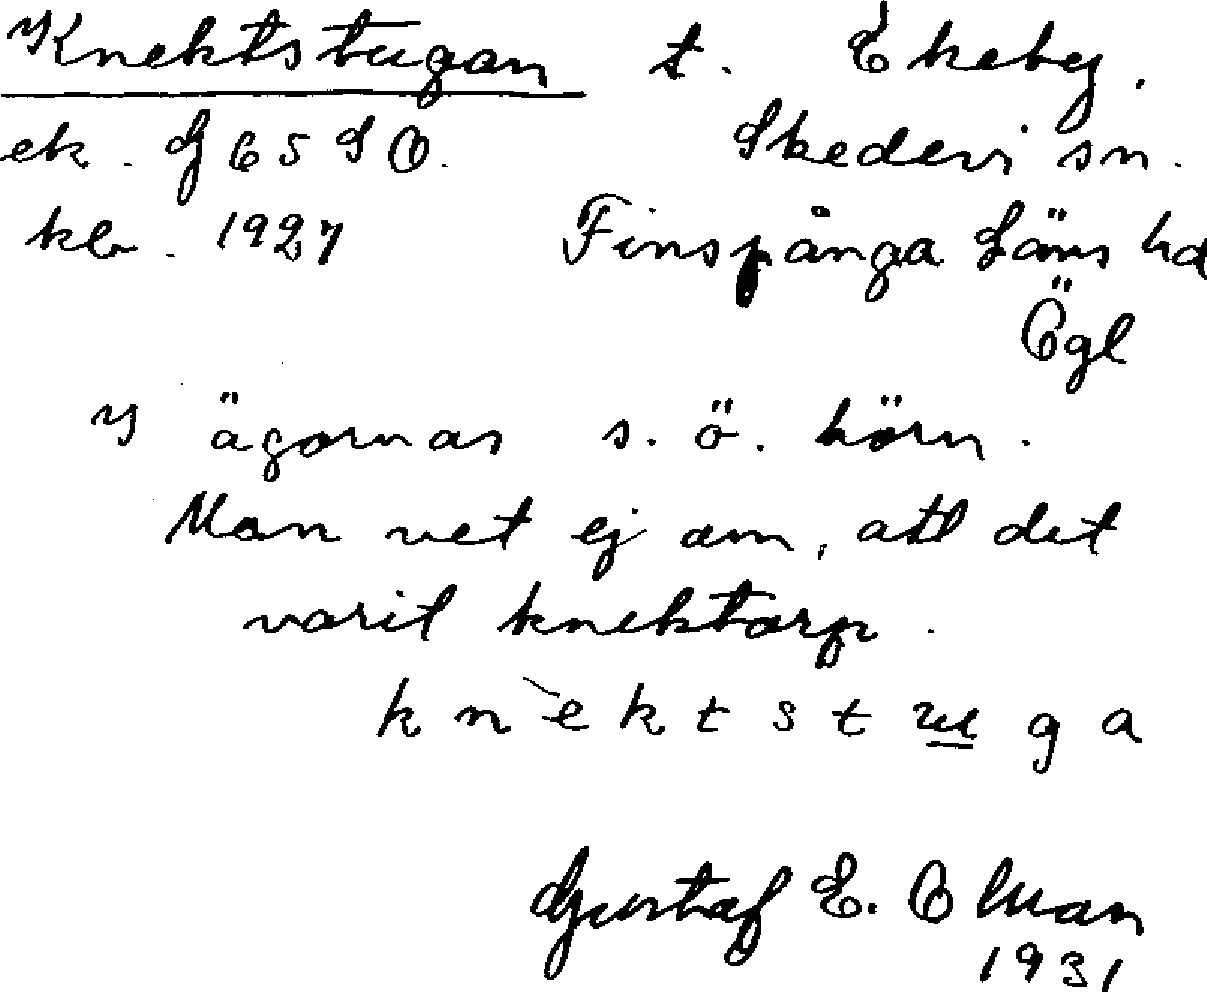 Knektstugan t. Ekeby.
ek. G 65 S O. Skedevi sn.
kb. 1927 Finspånga Läns hd
Ögl
I ägornas s. ö. hörn.
Man vet ej om, att det
varit knektorp.
knèktstuga
Gustaf E. Olman
1931